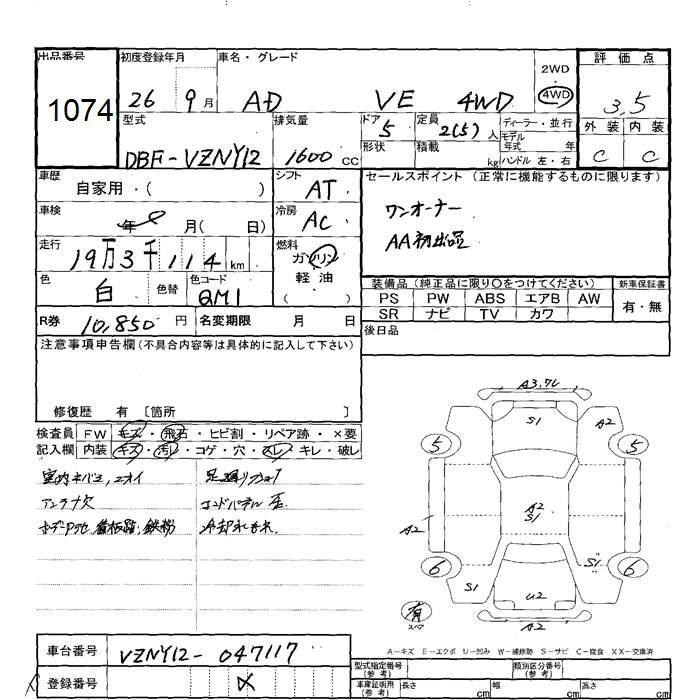 出品番号 初度登録年月 車名・グレード 2WD・4WD 評価点
1074 26 9月 AD VE 4WD 3.5
型式 排気量 ドア 5 定員 2(5)人 ディーラー・並行 外装 内装
DBF-VZNY12 1600cc 形状 積載 kg モデル年式 年 ハンドル 左・右 C C
車歴 自家用・( ) シフト AT セールスポイント (正常に機能するものに限ります)
車検 年 月( 日) 冷房 AC ワンオーナー
走行 19万3千114km 燃料 ガソリン 軽油 ( ) AA初出品
色 白 色替 色コード QM1 装備品 (純正品に限り○をつけてください) 新車保証書
PS PW ABS エアB AW 有・無
SR ナビ TV カワ
R券 10,850円 名変期限 月 日 後日品
注意事項申告欄(不具合内容等は具体的に記入して下さい)
修復歴 有 〔箇所 〕
検査員 FW キズ・飛石・ヒビ割・リペア跡・×要
記入欄 内装 キズ・汚レ・コゲ・穴・スレ・キレ・破レ
アンテナ欠 エンドパネル
A3 S1 A2
5 5
A2 S1
A2
6 6
S1 S1
U2
有 スペア A2
A-キズ E-エクボ U-凹み W-補修跡 S-サビ C-腐食 XX-交換済
車台番号 VZNY12-047117
登録番号
型式指定番号(参考) 類別区分番号(参考)
車庫証明用(参考) 長さ cm 幅 cm 高さ cm